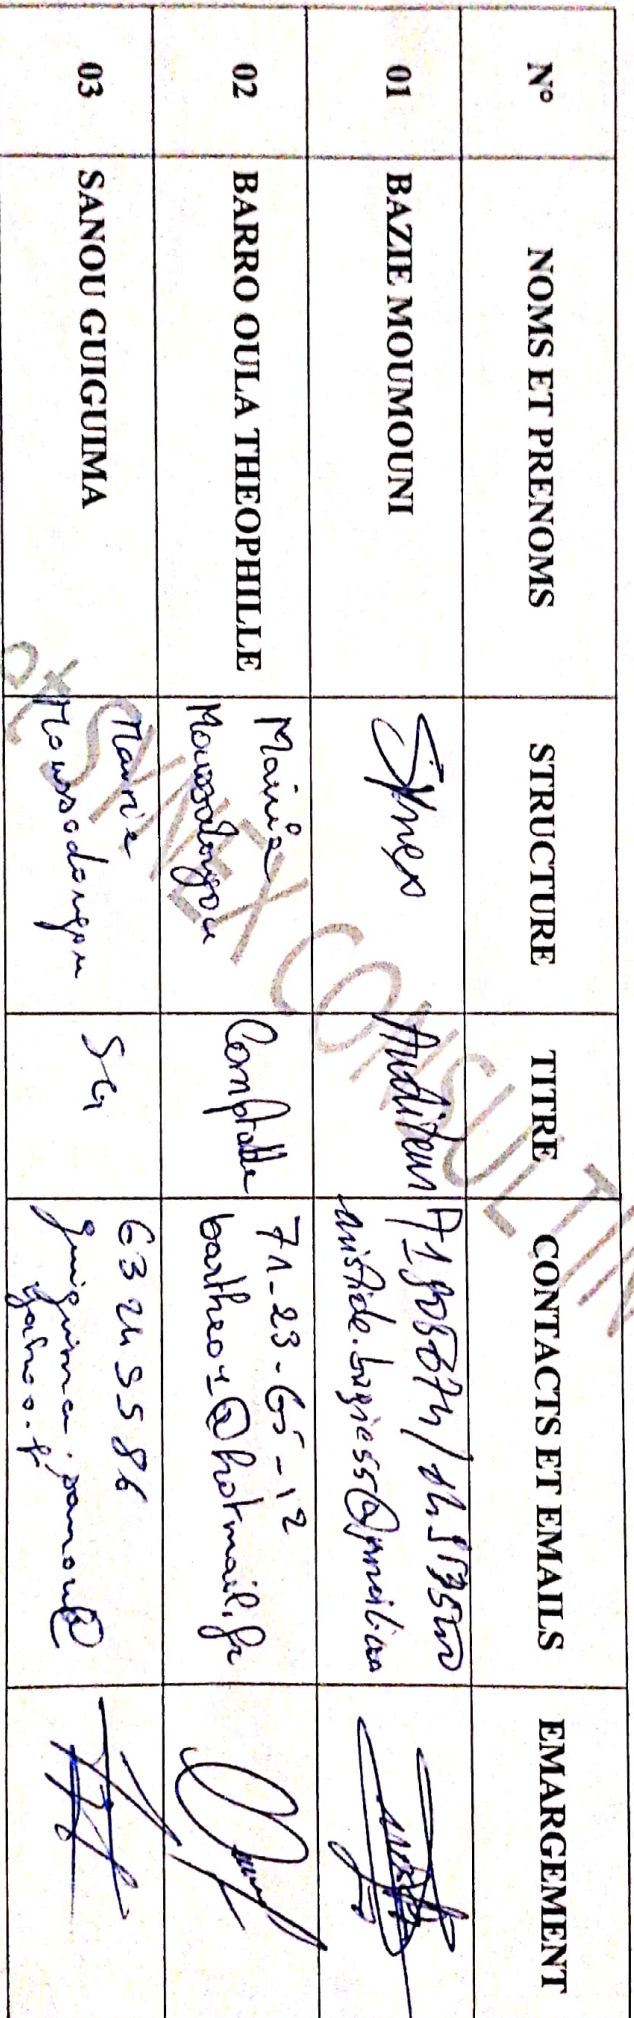 N° NOMS ET PRENOMS STRUCTURE TITRE CONTACTS ET EMAILS EMARGEMENT
01 BAZIE MOUMOUNI Synex Auditeur
02 BARRO OULA THEOPHILLE Mairie Moussodougou Comptable 71-23-65-12
bartheo1@hotmail.fr
03 SANOU GUIGUIMA Mairie Moussodougou SG 63 24 55 86
guiguima.sanou@
yahoo.fr
SYNEX CONSULTIN